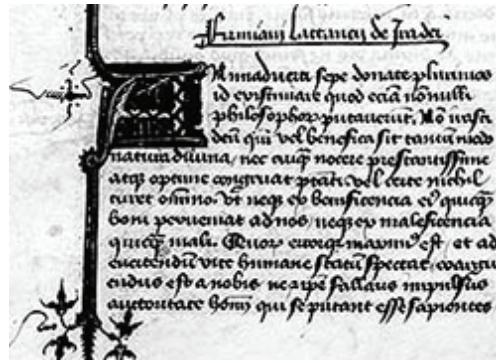 Firmiani lactancii de Ira dei
Animaduerti sepe donate plurimos
id existimare quod eciam nonnulli
philosophoꝝ putauerut. Nō irasci
deū qm̄ vel benefica sit tantūmodo
natura diuina, nec cuiqꝫ nocere prestantissime
atqꝫ optime congruat ptāti. vel certe nichil
curet omīno. vt neqꝫ ex beneficencia eiꝰ quicqꝫ
boni perueniat ad nos, neqꝫ ex maleficencia
quicqꝫ mali. Quoꝝ error qꝫ maximꝰ est, et ad
euertendū vite humane statū spectat, coarguendus
est a nobis, ne ipe fallaris impulsus
auctoritate hoīm qui se putant esse sapientes